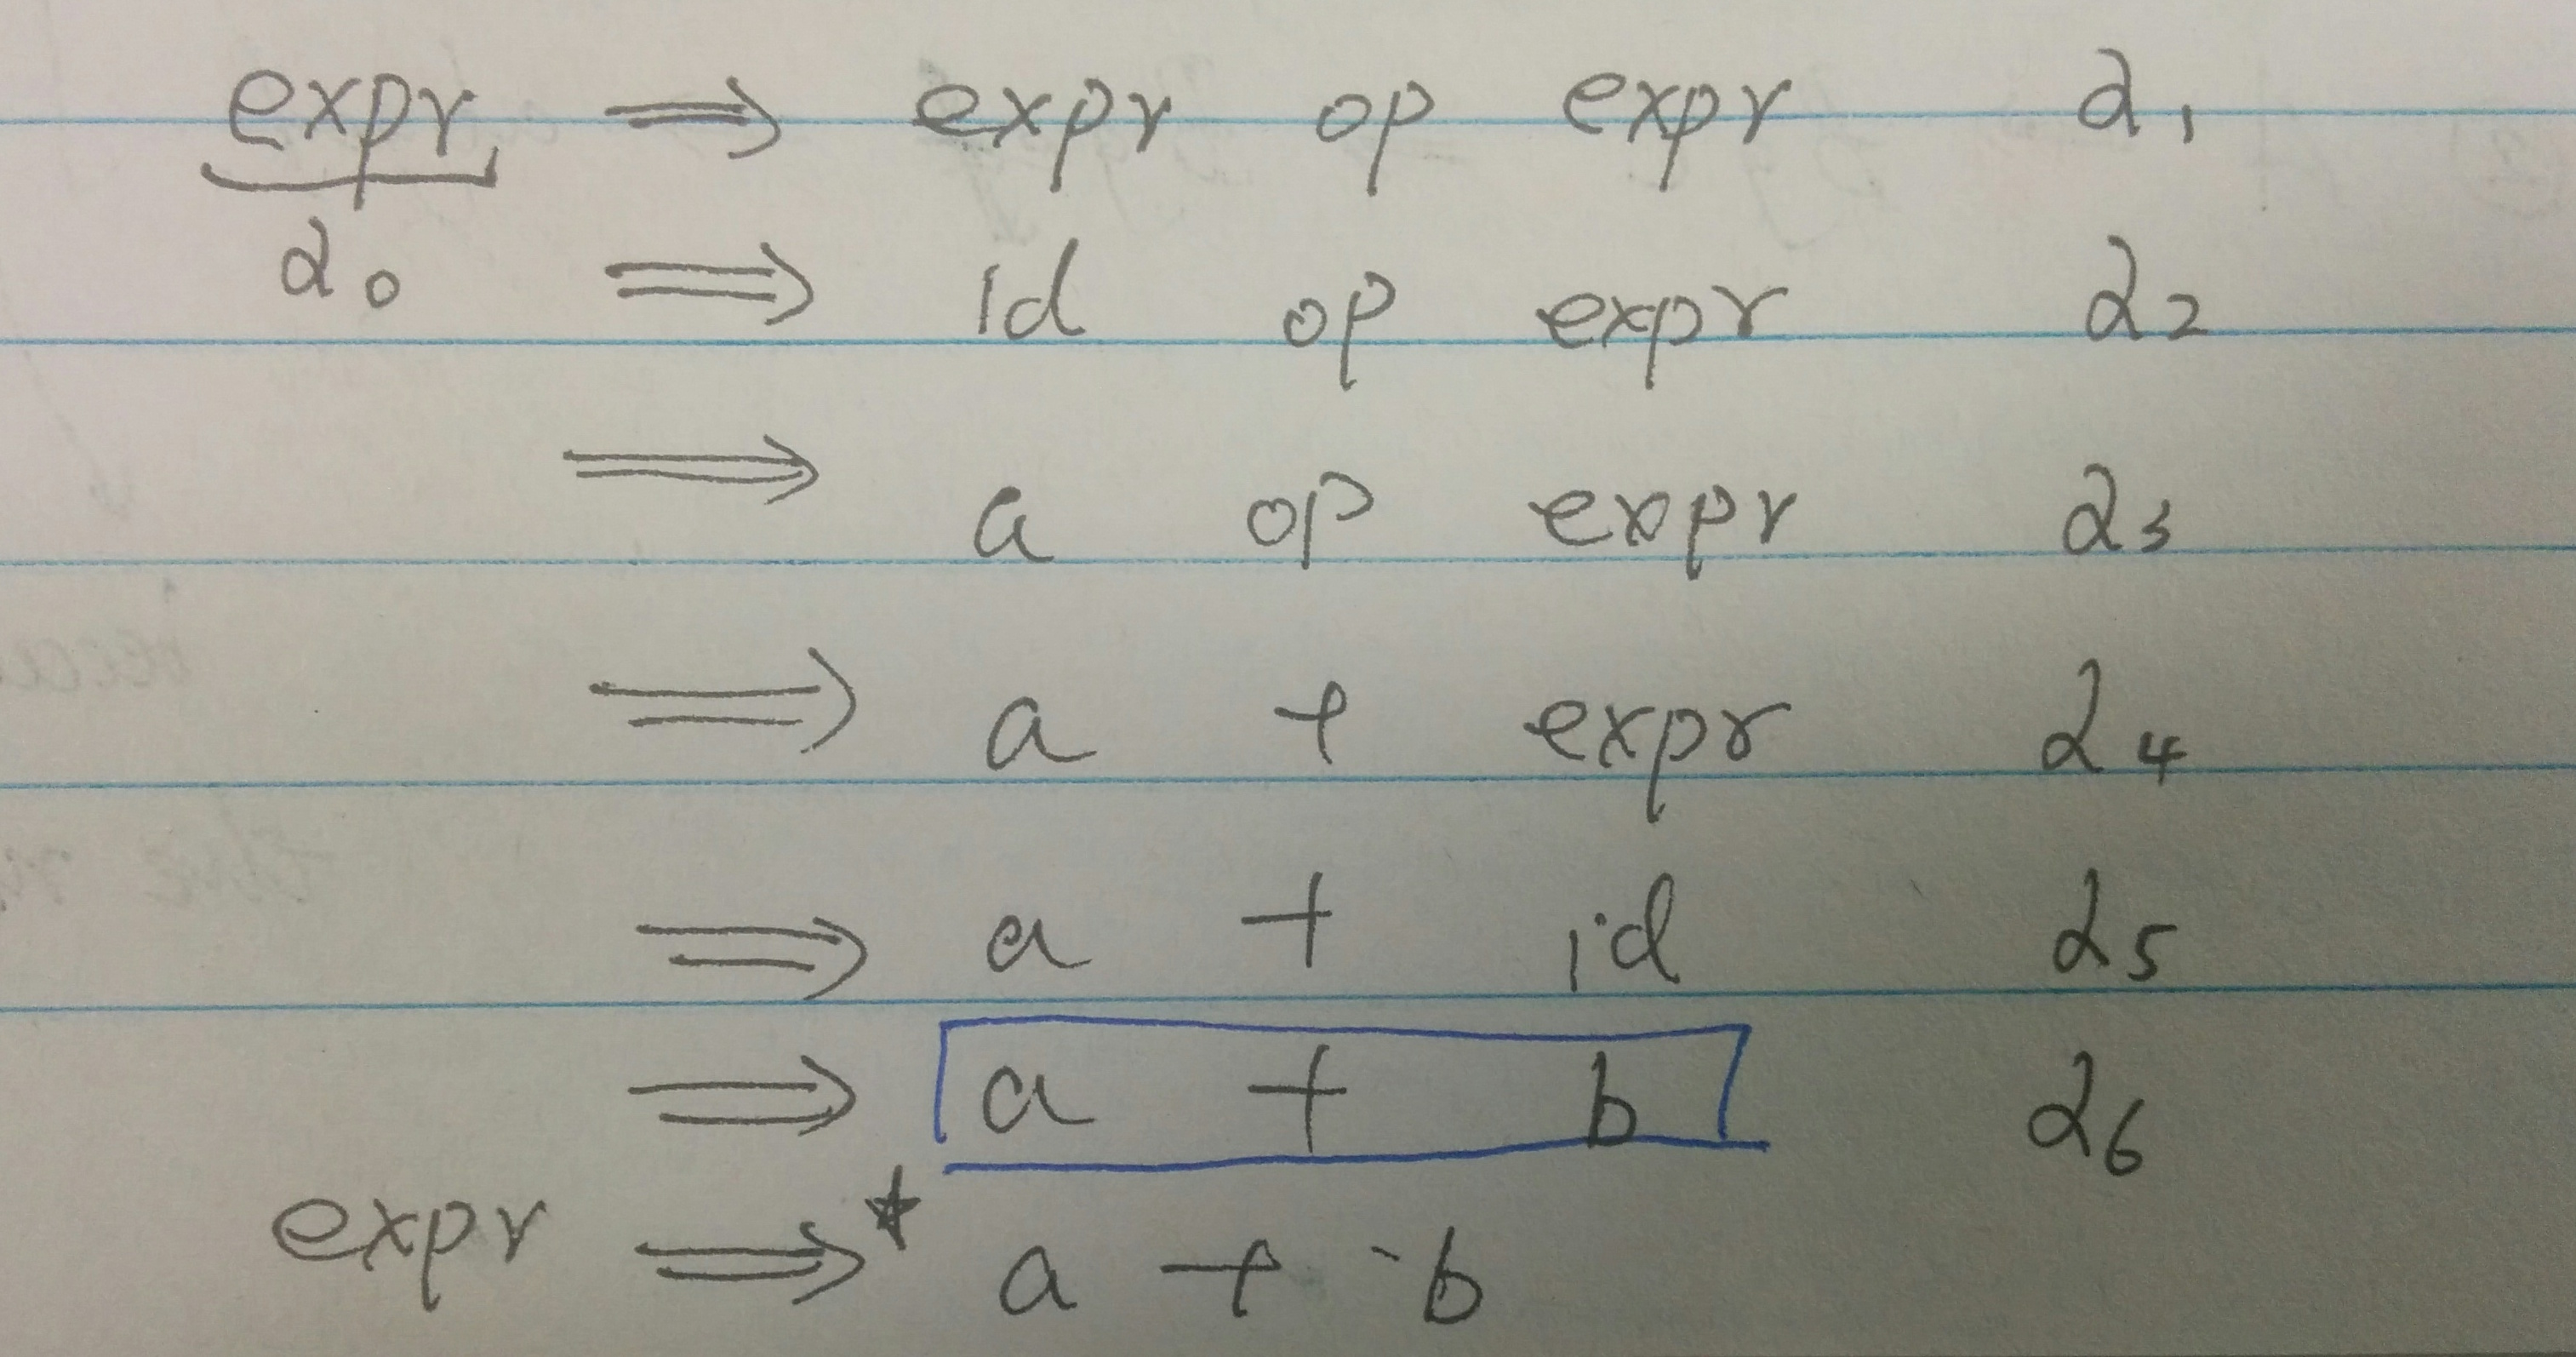 expr ⟹ expr op expr α₁
α₀ ⟹ id op expr α₂
⟹ a op expr α₃
⟹ a + expr α₄
⟹ a + id α₅
⟹ a + b α₆
expr ⟹* a + b